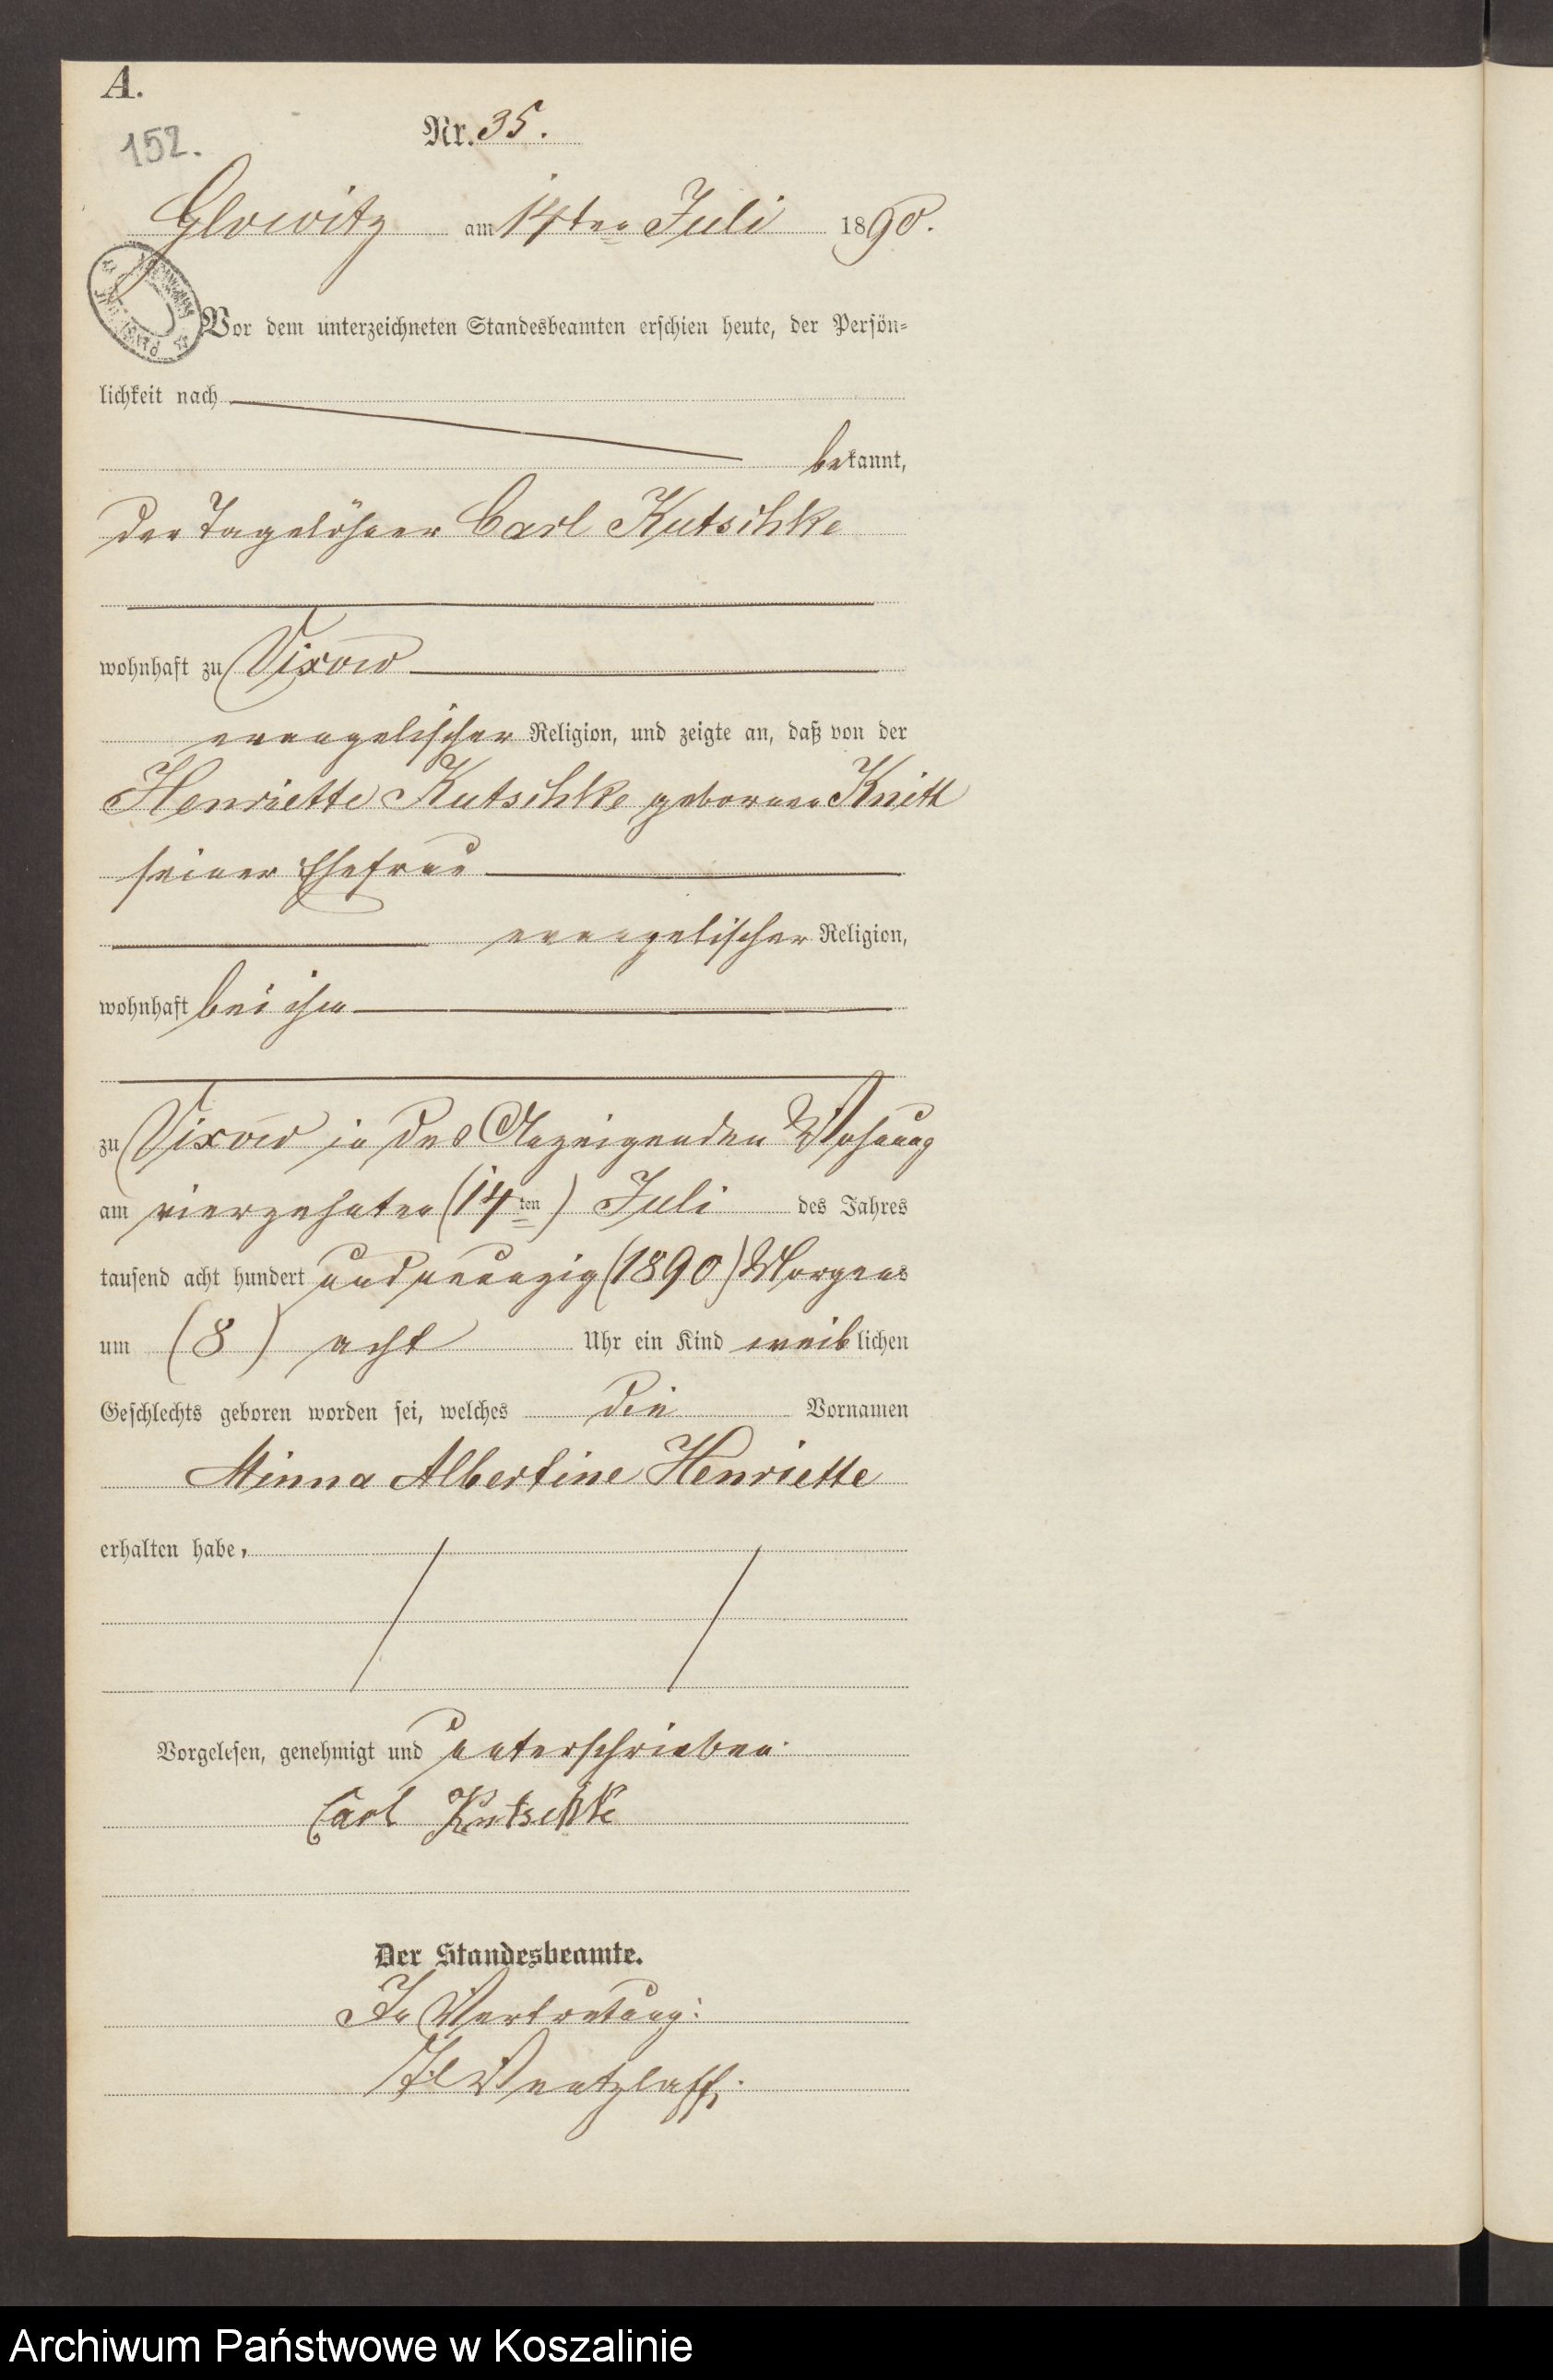 A.
152.
Nr. 35.
Glowitz am 14ten Juli 1890.
Vor dem unterzeichneten Standesbeamten erschien heute, der Persön-
lichkeit nach
bekannt,
der Tagelöhner Carl Kutschke
wohnhaft zu Vixow
evangelischer Religion, und zeigte an, daß von der
Henriette Kutschke geborene Knitt
seiner Ehefrau
evangelischer Religion,
wohnhaft bei ihm
zu Vixow in des Anzeigenden Wohnung
am vierzehnten (14ten) Juli des Jahres
tausend acht hundert und neunzig (1890) Morgens
um (8) acht Uhr ein Kind weiblichen
Geschlechts geboren worden sei, welches die Vornamen
Minna Albertine Henriette
erhalten habe,
Vorgelesen, genehmigt und unterschrieben.
Carl Kutschke
Der Standesbeamte.
In Vertretung:
Wentzlaff.
Archiwum Państwowe w Koszalinie